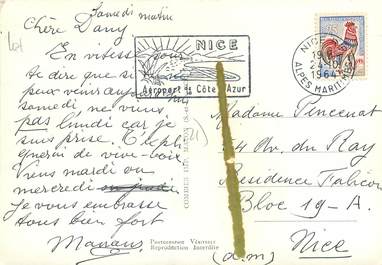 Samedi matin
Chère Dany
En vitesse pour
te dire que si
peux venir aujourd'hui
samedi ne viens
pas lundi car je
suis prise. T'expli
querai de vive-voix
Viens mardi ou
mercredi
je vous embrasse
tous bien fort
Maman
NICE
Aéroport de Côte d'Azur
NICE
1964
ALPES MARITIMES
Madame Pincenat
34 Av. du Ray
Résidence Falicon
Bloc 19-A.
Nice
(A.M.)
Photochrome Véritable
Reproduction Interdite